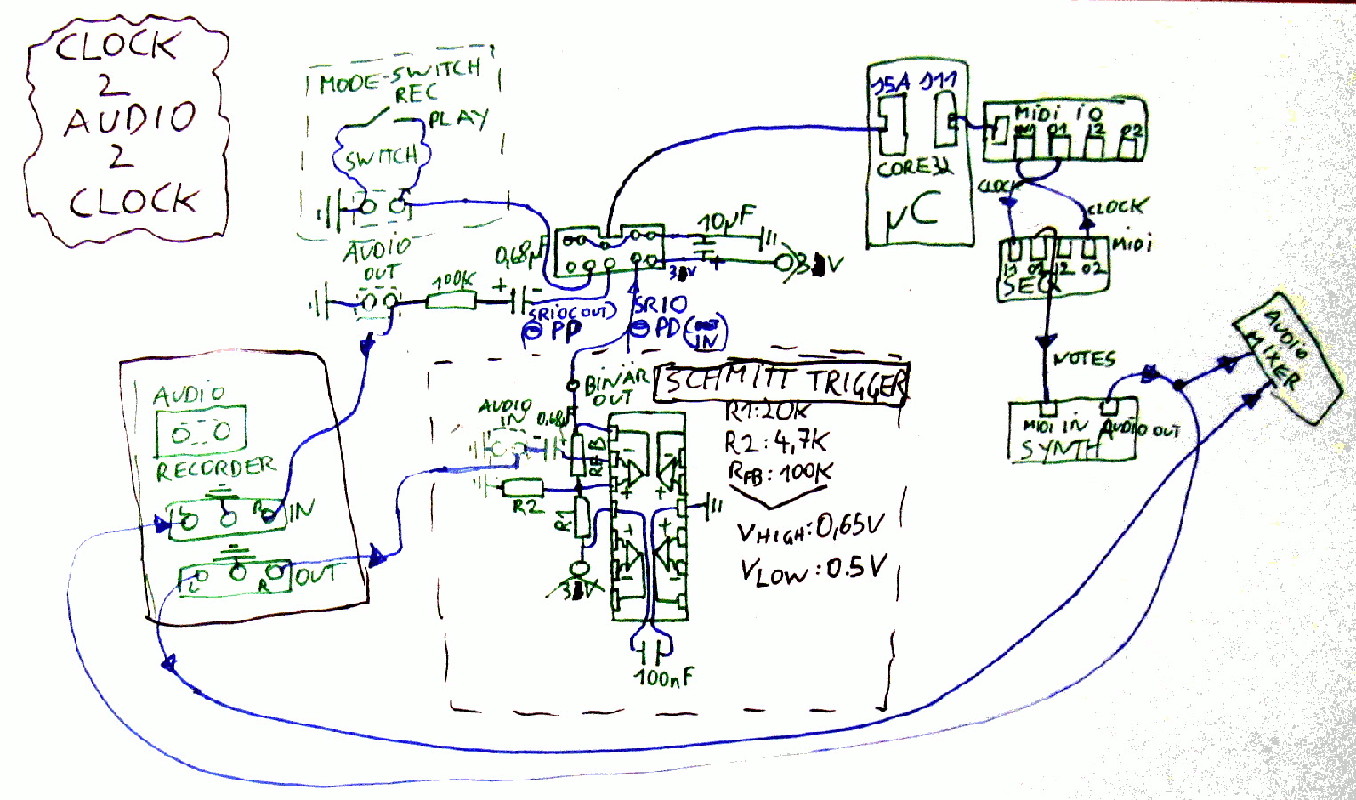 CLOCK
2
AUDIO
2
CLOCK
MODE-SWITCH
REC
PLAY
SWITCH
AUDIO
OUT
100K
+
0,68µF
10µF
+
J5A J11
CORE32
µC
MIDI IO
O1 I2 O2
CLOCK
CLOCK
MIDI
I1 O1 I2 O2
SEQ
NOTES
MIDI IN AUDIO OUT
SYNTH
AUDIO
MIXER
SRIO
PP
PD
IN
AUDIO
RECORDER
L R IN
L R OUT
BINAR
OUT
SCHMITT TRIGGER
R1: 20K
R2: 4,7K
RFB: 100K
VHIGH: 0,65V
VLOW: 0.5V
AUDIO
IN
0,68µF
RFB
R2
R1
100nF